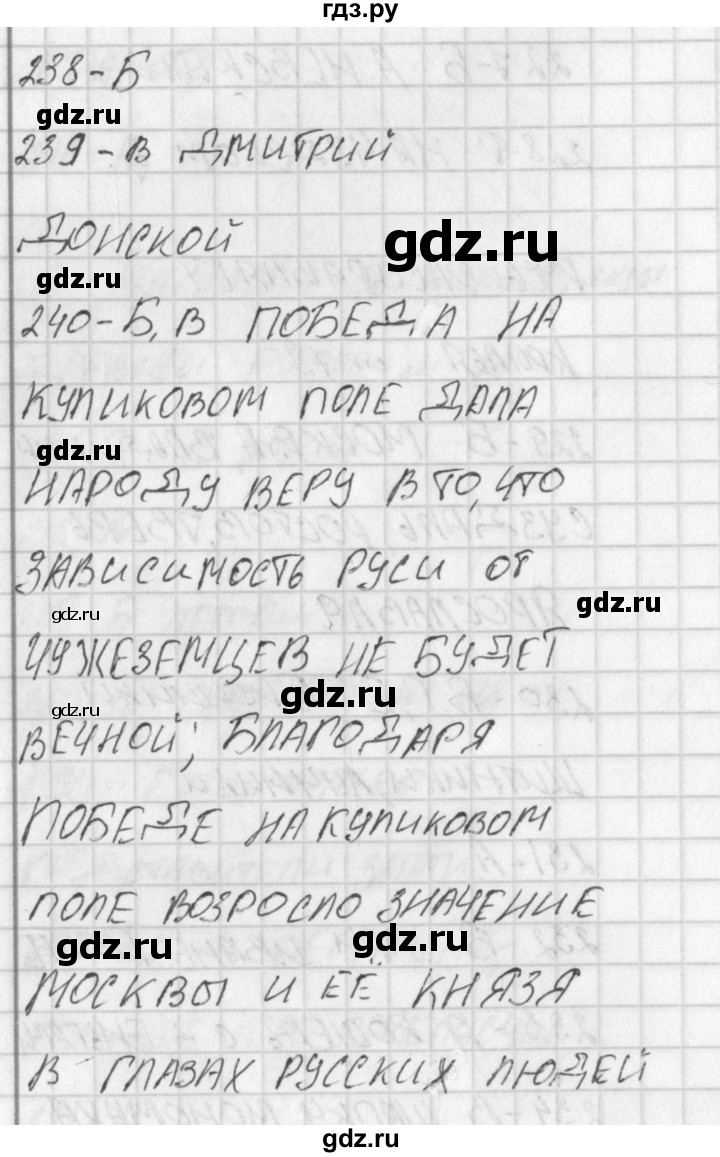 гдз.ру
238-Б
gdz.ru
239-В ДМИТРИЙ
ДОНСКОЙ
gdz.ru
gdz.ru
240-Б,В ПОБЕДА НА
КУЛИКОВОМ ПОЛЕ ДАЛА
gdz.ru
НАРОДУ ВЕРУ В ТО, ЧТО
ЗАВИСИМОСТЬ РУСИ ОТ
gdz.ru
gdz.ru
ЧУЖЕЗЕМЦЕВ НЕ БУДЕТ
gdz.ru
gdz.ru
ВЕЧНОЙ; БЛАГОДАРЯ
ПОБЕДЕ НА КУЛИКОВОМ
ПОЛЕ ВОЗРОСЛО ЗНАЧЕНИЕ
gdz.ru
gdz.ru
МОСКВЫ И ЕЁ КНЯЗЯ
В ГЛАЗАХ РУССКИХ ЛЮДЕЙ
gdz.ru